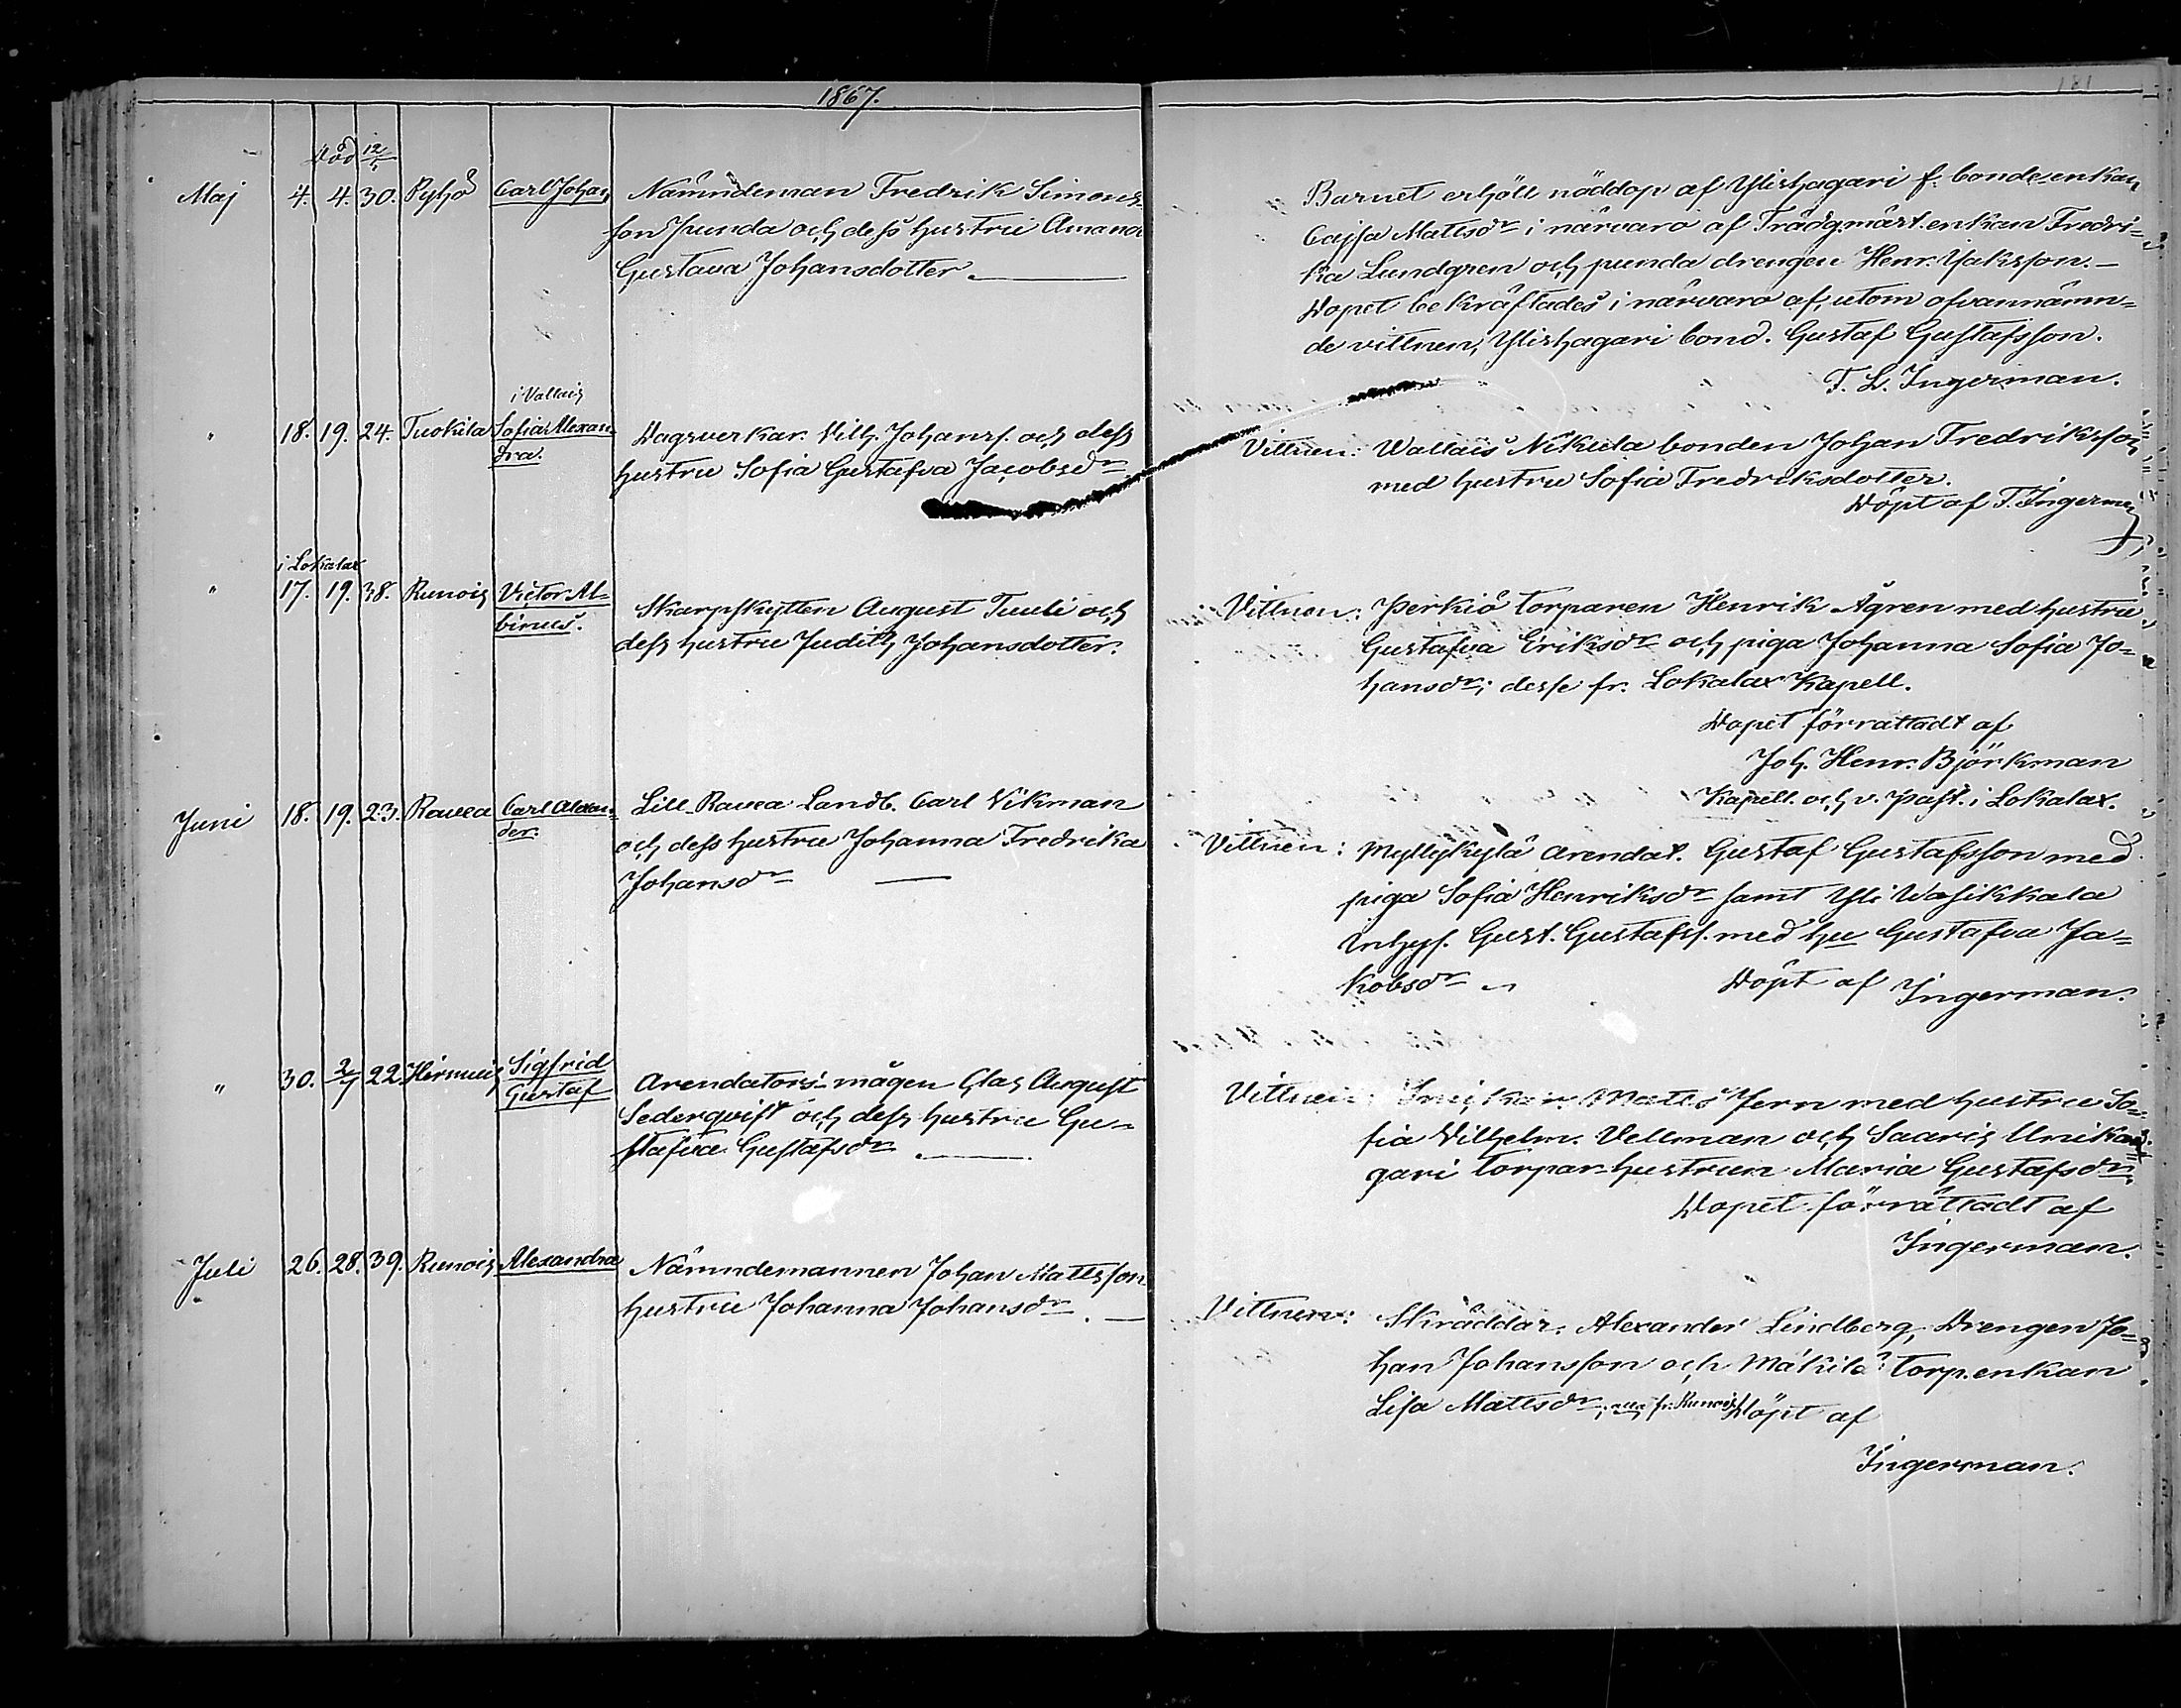 1867.
181
död 12/5
Maj 4. 4. 30. Pyhö Carl Johan Nämndeman Fredrik Simons-
son Punda och dess hustru Amanda
Gustava Johansdotter.
i Vallais
" 18. 19. 24. Tuokila Sofia Alexan-
dra.
Dagsverkar. Vilh. Johanss. och dess
hustru Sofia Gustafva Jacobsdr
i Lokalax
" 17. 19. 38. Runois Victor Al-
binus.
Skarpskytten August Tuuli och
dess hustru Judith Johansdotter.
Juni 18. 19. 23. Rauvea Carl Alexan-
der.
Lill Rauvea Landb. Carl Vikman
och dess hustru Johanna Fredrika
Johansdr
" 30. 2/7 22. Sigfrid
Gustaf
Arendators-mågen Clas August
Sederqvist och dess hustru Gu-
stafva Gustafsdr.
Juli 26. 28. 39. Runois Alexandra Nämndemannen Johan Mattsson
hustru Johanna Johansdr.
Barnet erhöll nöddop af Ylishagari f. bonde-enkan
Cajsa Mattsdr i närvaro af Trädg.mäst. enkan Fredri-
ka Lundgren och Punda drengen Henr. Isaksson.
Dopet bekräftades i närvaro af, utom ofvannämn-
de vittnen, Ylishagari bond. Gustaf Gustafsson.
T. L. Ingerman.
Vittnen: Wallais Nikula bonden Johan Fredriksson
med hustru Sofia Fredriksdotter.
Döpt af T. Ingerman
Vittnen: Perkiö torparen Henrik Ågren med hustru
Gustafva Eriksdr och piga Johanna Sofia Jo-
hansdr; desse fr. Lokalax Kapell.
Dopet förrättadt af
Joh. Henr. Björkman
Kapell. och v. past. i Lokalax.
Vittnen: Myllykylä Arendat. Gustaf Gustafsson med
piga Sofia Henriksdr samt Yli Wasikkala
Inhys. Gust. Gustafss. med hu Gustafva Ja-
kobsdr Döpt af Ingerman.
Vittnen: Snickar. Matts Jern med hustru So-
fia Vilhelm. Vellman och Saaris Unikan-
gari torpar-hustrun Maria Gustafsdr.
Dopet förrättadt af
Ingerman.
Vittnen: Skräddar. Alexander Lindberg, Drengen Jo-
han Johansson och Mäkilä torp.enkan
Lisa Mattsdr; alla fr. Runois Döpt af
Ingerman.